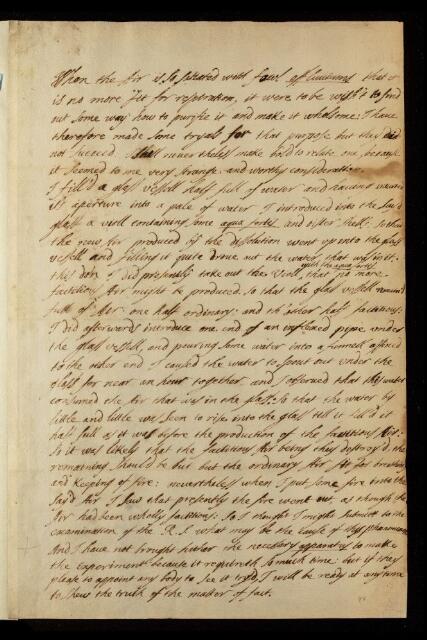 When the Air is so satiated with fowl effluviums that it
is no more fit for respiration, it were to be wish't to find
out some way how to purifie it and make it wholsome: I have
therefore made some tryals for that purpose but they did
not succeed. I shall nevertheless make bold to relate one because
it seemed to me very strange and worthy consideration.
I fill'd a glass vessell half full of water and having
it's aperture into a pale of water I introduced into the say'd
glass a viall containing some aqua fortis and oister shell: So that
the new Air produced by the dissolution went up into the glass
vessell and filling it quite drove out the water that was in it.
this don I did presently take out the viall with the aqua fortis that no more
factitious Air might be produced. So that the glass vessell remain'd
full of Air: one half ordinary: and th'other half factitious.
I did afterwards introduce one end of an inflexed pipe under
the glass vessell, and pouring some water into a funnell affixed
to the other end I caused the water to spout out under the
glass for near an hour together and I observed that the water
consumed the Air that was in the glass: So that the water by
little and little was seen to rise into the glass till it fill'd it
half full as it was before the production of the factitious Air:
So it was likely that the factitious Air being thus destroy'd the
remaining should be but the ordinary Air fit for breathing
and keeping of fire: nevertheless when I put some fire into the
say'd Air I saw that presently the fire went out, as though the
Air had been wholly factitious: So I thought I might submit to the
examination of the R. S. what may be the cause of this phaenomenon
And I have not brought hither the necessary apparatus to make
the experiment because it requireth so much time: but if they
please to appoint any body to see it tryed, I will be ready at any time
to shew the truth of the matter of fact.